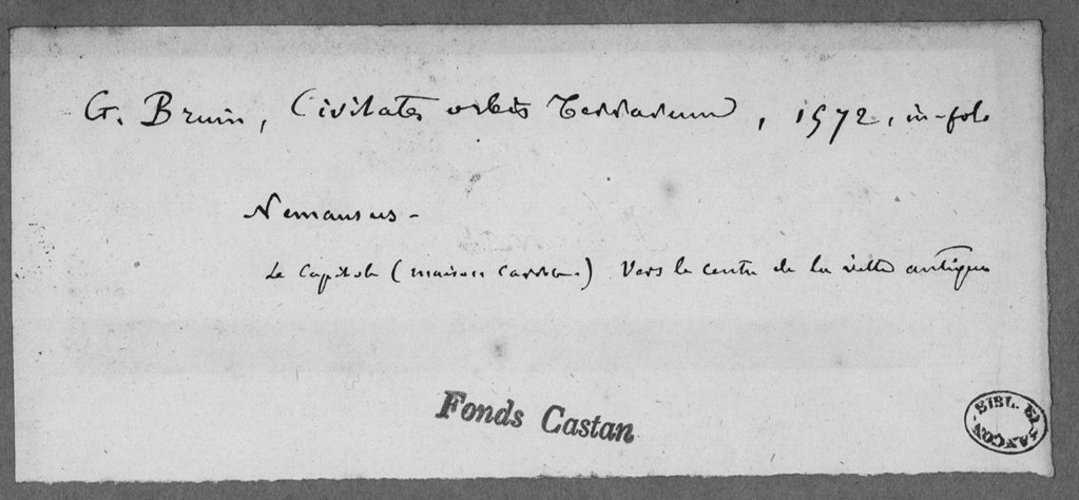 G. Bruin, Civitates orbis Terrarum, 1572, in-fol.
Nemausus -
Le Capitole (maison carrée.) vers le centre de la ville antique
Fonds Castan
BIBL. BESANÇON